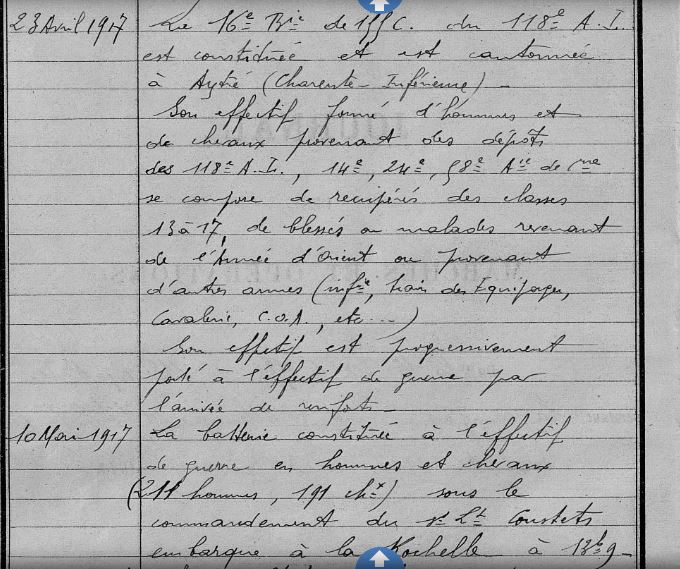 23 Avril 1917 La 16e Bie de 155 C. du 118e A.L.
est constituée et est cantonnée
à Aytré (Charente-Inférieure) -
Son effectif formé d'hommes et
de chevaux provenant des dépôts
des 118e A.L., 14e, 24e, 58e Aie de Cne
se compose de récupérés des classes
13 à 17, de blessés ou malades revenant
de l'Armée d'Orient ou provenant
d'autres armes (infie, train des Equipages,
Cavalerie, C.O.A., etc...)
Son effectif est progressivement
porté à l'effectif de guerre par
l'arrivée de renforts -
10 Mai 1917 La batterie constituée à l'effectif
de guerre en hommes et chevaux
(211 hommes, 191 chx) sous le
commandement du Lt Coustets
embarque à la Rochelle à 13h9 -